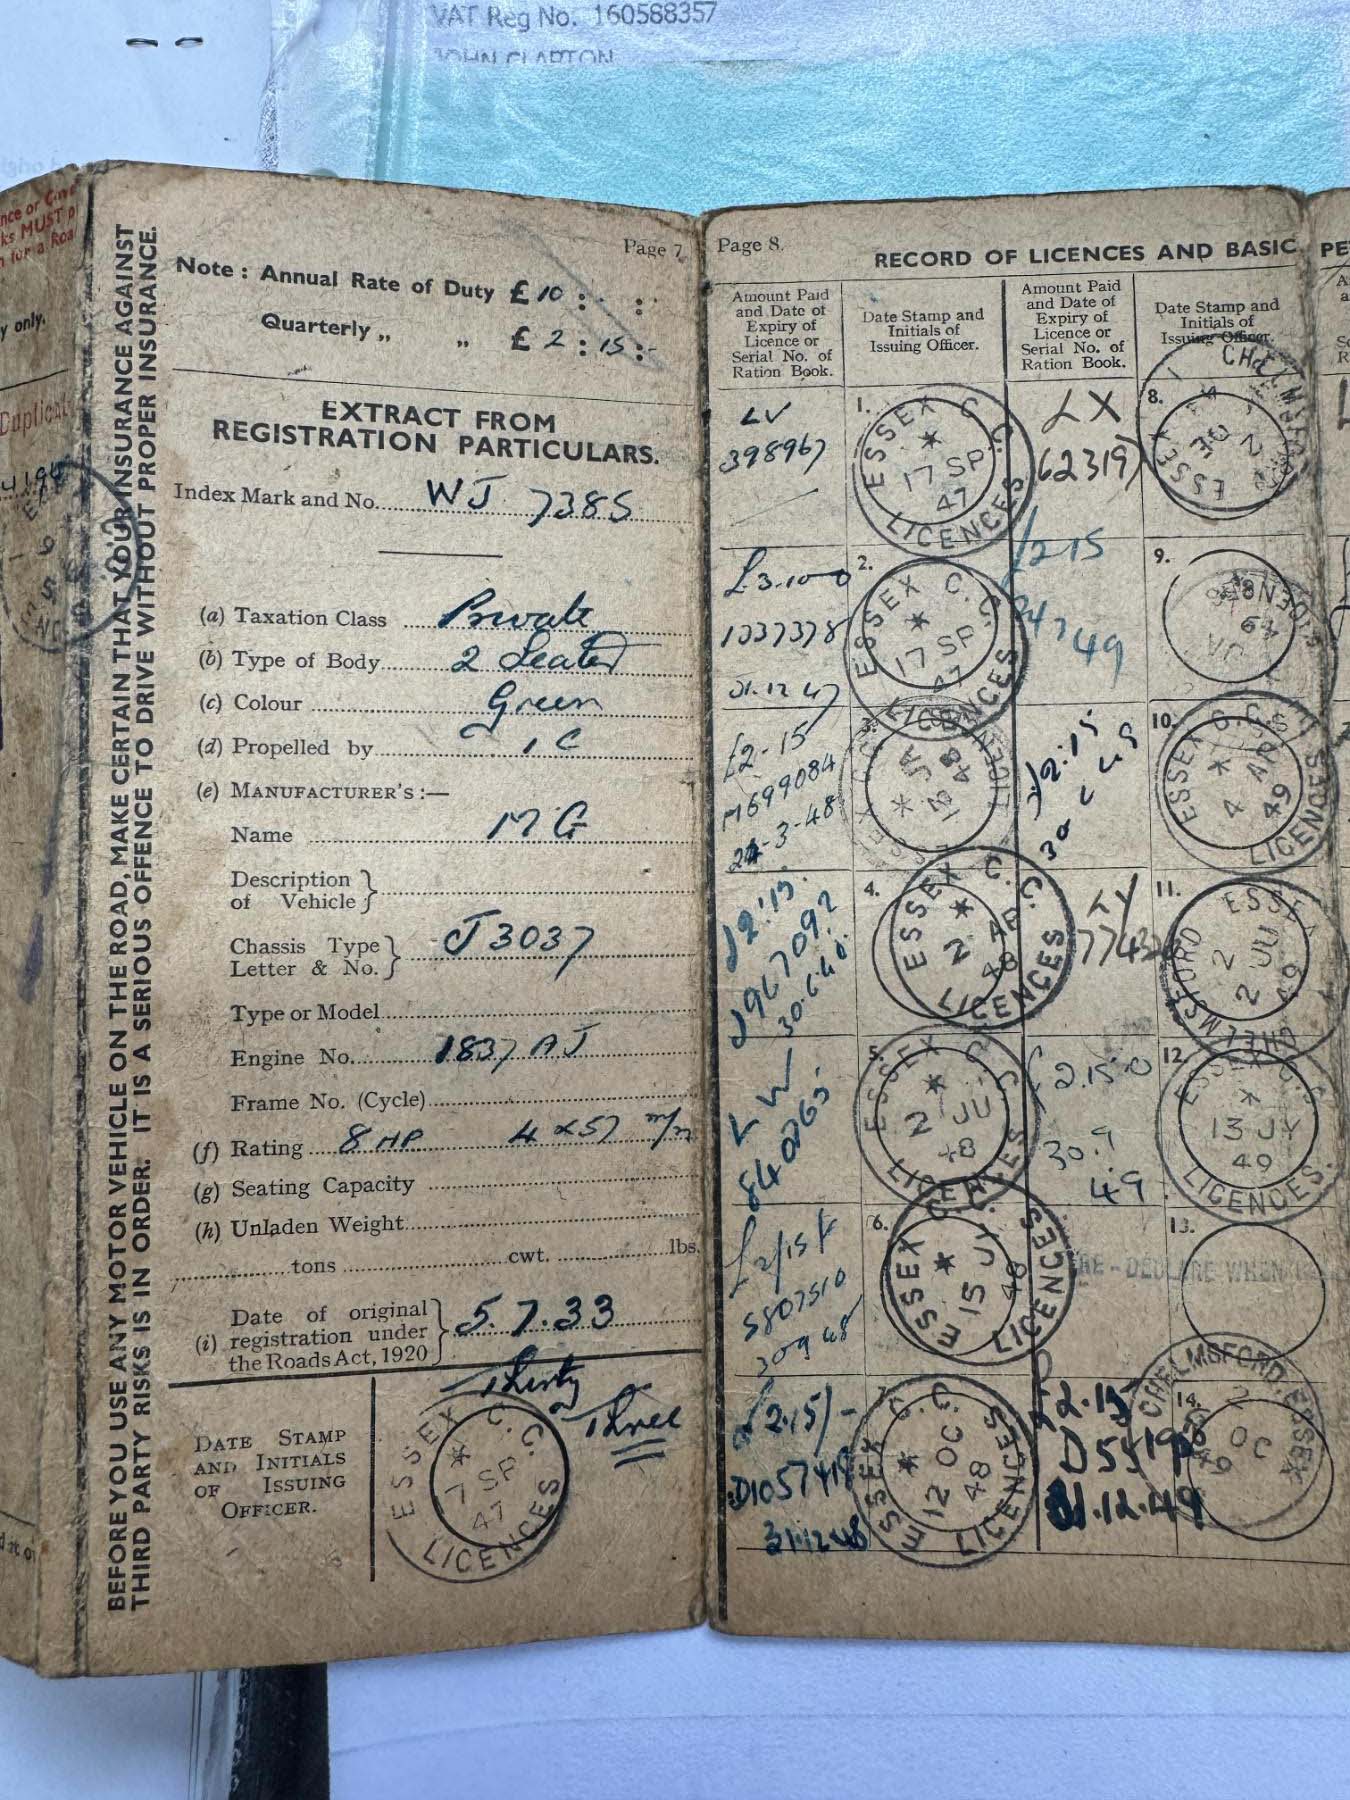 VAT Reg No. 160588357
JOHN CLARTON
BEFORE YOU USE ANY MOTOR VEHICLE ON THE ROAD, MAKE CERTAIN THAT YOUR INSURANCE AGAINST
THIRD PARTY RISKS IS IN ORDER. IT IS A SERIOUS OFFENCE TO DRIVE WITHOUT PROPER INSURANCE.
y only.
Duplicate
Page 7
Note : Annual Rate of Duty £ 10 : - :
Quarterly „ „ £ 2 : 15 : -
EXTRACT FROM
REGISTRATION PARTICULARS.
Index Mark and No. WJ 7385
(a) Taxation Class Private
(b) Type of Body 2 Seater
(c) Colour Green
(d) Propelled by I C
(e) MANUFACTURER'S :—
Name M G
Description
of Vehicle
Chassis Type
Letter & No. J 3037
Type or Model
Engine No. 1837 A J
Frame No. (Cycle)
(f) Rating 8 HP 4 x 57 m/m
(g) Seating Capacity
(h) Unladen Weight
tons cwt. lbs.
Date of original
(i) registration under 5.7.33
the Roads Act, 1920
Thirty
Three
DATE STAMP
AND INITIALS
OF ISSUING
OFFICER.
ESSEX C.C.
7 SP
47
LICENCES
Page 8.
RECORD OF LICENCES AND BASIC PE
Amount Paid
and Date of
Expiry of
Licence or
Serial No. of
Ration Book.
Date Stamp and
Initials of
Issuing Officer.
Amount Paid
and Date of
Expiry of
Licence or
Serial No. of
Ration Book.
Date Stamp and
Initials of
Issuing Officer.
LV
398967
1.
ESSEX C.C.
17 SP
47
LICENCES
LX
623197
8.
CHELMSFORD
ESSEX
2
DE
£3.10-0
1337378
31.12.47
2.
ESSEX C.C.
17 SP
47
LICENCES
£2 15
24 3 49
9.
JA
49
£2-15
M699084
24-3-48
3.
ESSEX C.C.
JA
48
LICENCES
£2.15
30 6 49
10.
ESSEX C.C.
4 AP
49
LICENCES
£2.15.
J967092
30.6.48.
4.
ESSEX C.C.
2 AP
48
LICENCES
LY
11.
ESSEX
2 JU
49
CHELMSFORD
LW
840265
5.
ESSEX C.C.
2 JU
48
LICENCES
£2.15.0
30.9
49
12.
ESSEX C.C.
13 JY
49
LICENCES
£2/15/-
5807510
30 9 48
6.
ESSEX C.C.
15 JY
48
LICENCES
13.
RE-DECLARE WHEN
£2.15/-
D1057418
31.12.48
7.
ESSEX C.C.
12 OC
48
LICENCES
£2.15
31.12.49
14.
CHELMSFORD, ESSEX
OC